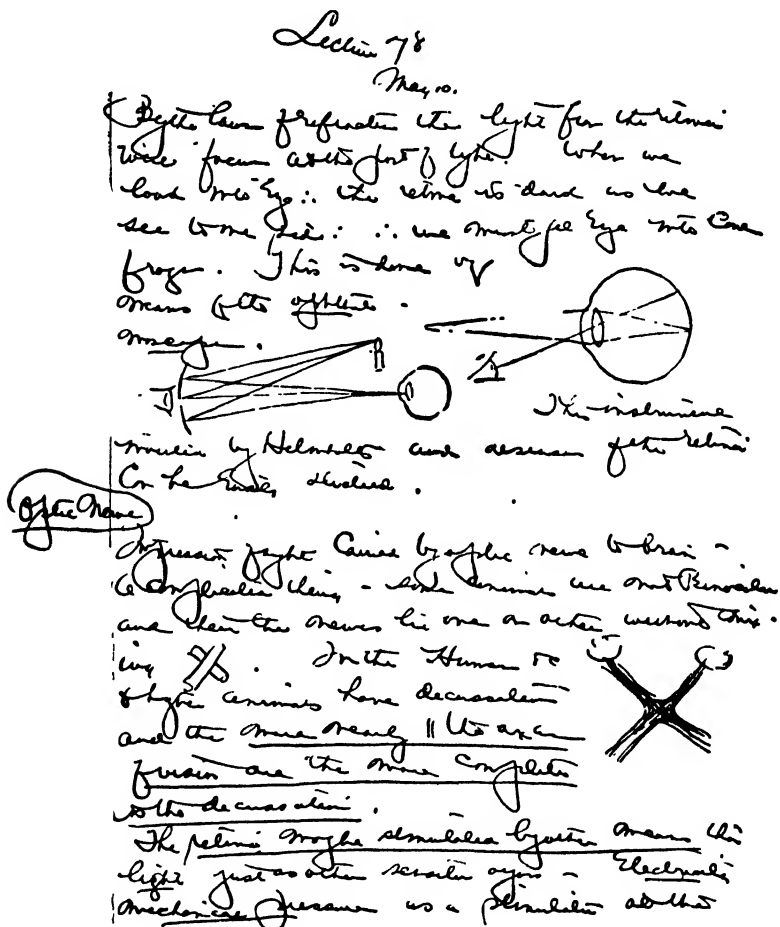 Lecture 78
May 10.
By the laws of refraction the light from the retina
will focus at the point of light. When we
look into Eye ∴ the retina is dark as we
see to one side: ∴ we must get Eye into Cone
of rays. This is done by
means of the ophthal-
moscope.
This instrument
by Helmholtz and diseases of the retina
Can be Easily studied.
Optic Nerve
Impression of sight Carried by optic nerve to brain -
a complicated thing - some animals are not Binocular
and then the nerves lie one on other without mix-
ing. In the Human &
higher animals have decussation
and the more nearly || the axes
of vision are the more complete
is the decussation.
The retina may be stimulated by other means than
light just as other sensitive organs - Electricity
mechanical pressure as a stimulation at the